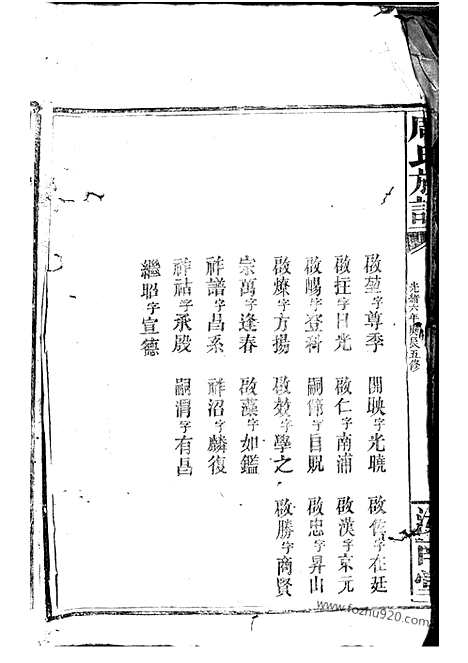 周氏族譜
光緒六年庚辰五修
啟堃字尊季 開映字光曉 啟佐字在廷
啟抂字日光 啟仁字南浦 啟漢字京元
啟暘字登科 嗣偉字自貺 啟忠字昇山
啟燎字方揚 啟焚字學之 啟勝字商賢
宗萬字逢春 啟藻字如鑑
祥譜字昌系 祥沼字麟復
祥祜字承殷 嗣渭字有昌
繼昭字宣德
www.fozhu920.com